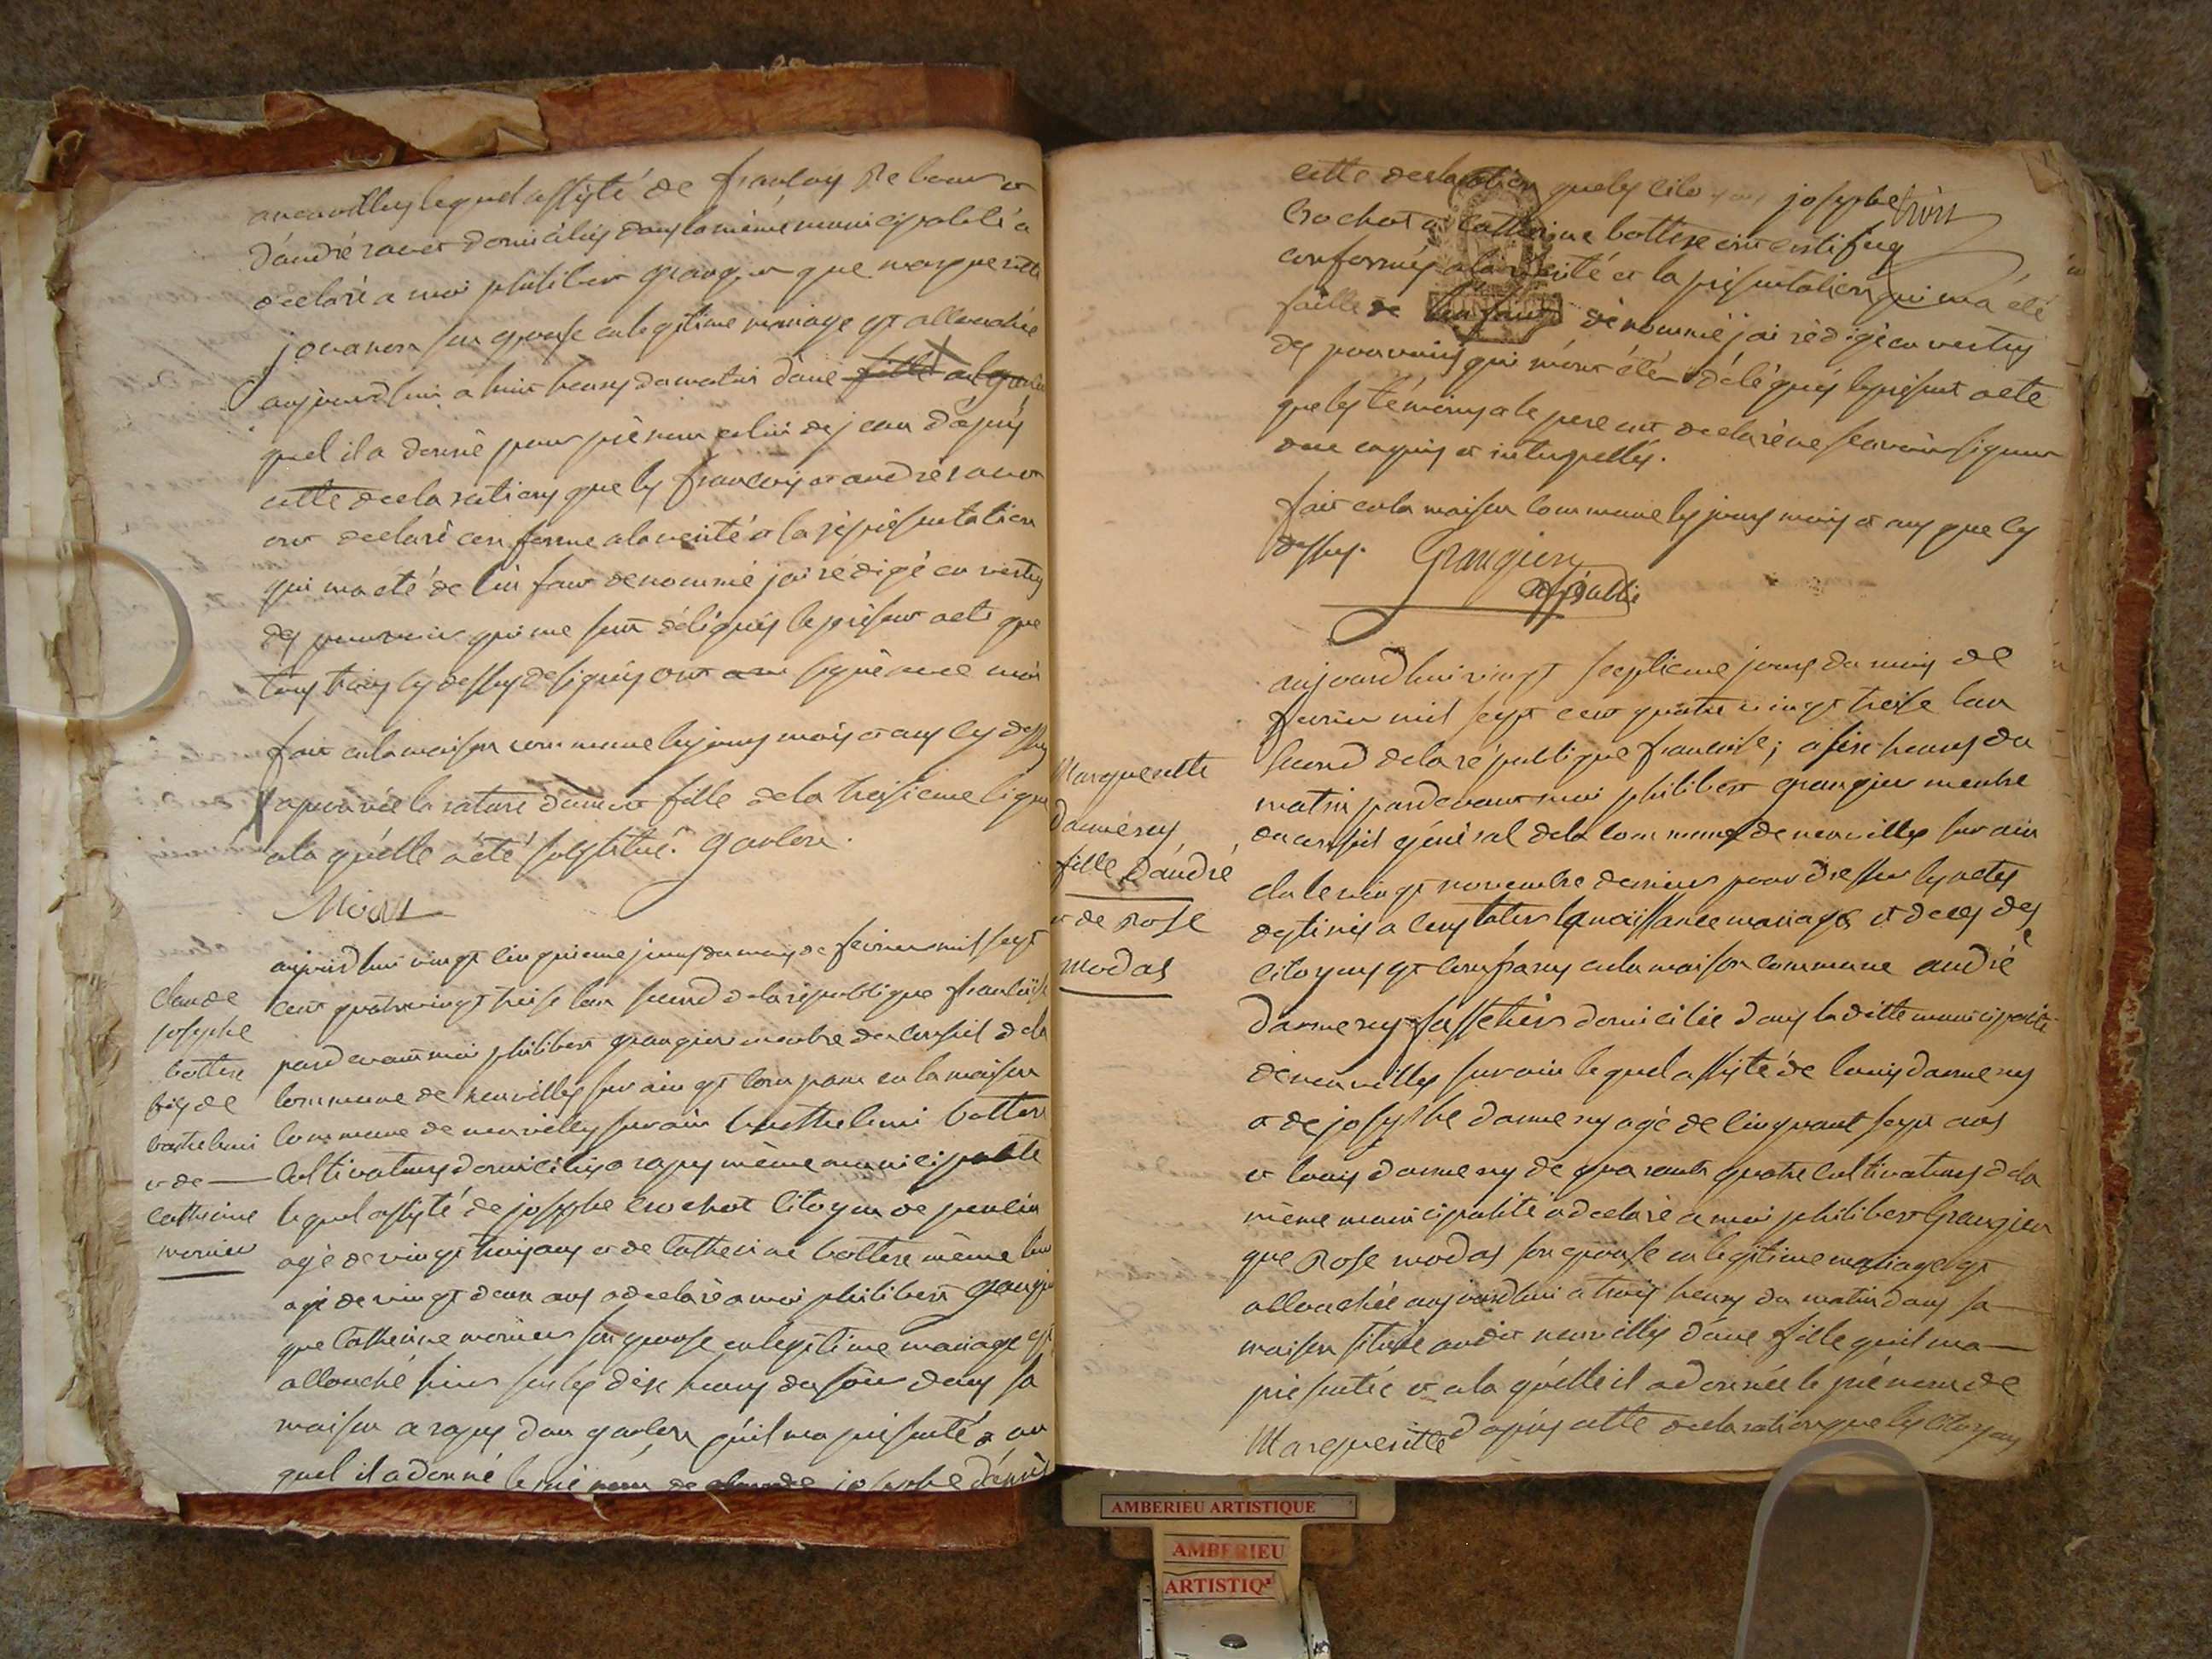 aneuvilles lequel assisté de françois Rebour et
d'andré ravet domiciliés dans la même municipalité a
declaré a moi philibert grangier que marguerite
jovanon son epouse en legitime mariage est allouchée
aujourd'hui a huit heures du matin d'une fille
quel il a donné pour prénom celui de jean d'après
cette declarations que les françois et andré ravet
ont declaré conforme a la verité et la répresentation
qui ma eté de l'enfant denommé jai rédigé en vertus
des pouvoirs qui me sont délegués le présent acte que
tous trois cy dessus designés ont signé avec moi
fait en la maison commune les jours mois et ans cy dessus
aprouvée la rature d'un mot fille de la troisieme ligne
a la quélle a été substitué garson.
claude
josephe
bottere
fils de
barthelemi
et de
catherine
mornier
aujourd'hui vingt cinquieme jour du mois de fevrier mil sept
cent quatre vingt treise l'an second de la république françoise
pard devant moi philibert grangier membre du conseil de la
commune de neuvilles sur ain est comparu en la maison
commune de neuvilles sur ain barthelemi bottere
cultivateurs domiciliés a rapus même municipalité
lequel assisté de josephe crochat citoyen de poncin
agé de vingt trois ans et de catherine bottere même lieu
agé de vingt deux ans a declaré a moi philibert grangier
que catherine mornier son epouse en legitime mariage est
allouché hier sur les dix heures du soir dans sa
maison a rapus d'un garson qu'il ma presenté et au
quel il a donné le pré nom de claude josephe d'après
cette declaration que les citoyens josephe
crochat et catherine bottere ont certifiée
conformes a la verité et la présentation qui m'a été
faitte de l'enfant dénommé jai rédigé en vertus
des pouvoirs qui m'ont été délégués le présent acte
que les témoins et le pere ont declaré ne scavoir signer
de ce enquis et interpellés.
fait en la maison commune les jours mois et ans que cy
dessus. Grangier
off public
Marguerite
Dannery
fille D'andré
et de Rose
Modas
aujourd'hui vingt septieme jour du mois de
fevrier mil sept cent quatre vingt treise l'an
second de la république françoise; a six heures du
matin pard devant moi philibert grangier membre
du conseil général de la commune de neuvilles sur ain
elu le vingt novembre dernier pour dresser les actes
destinés a constater la naissance mariages et deces des
citoyens est comparu en la maison commune andré
Dannery domicilié dans la ditte municipalité
de neuvilles sur ain lequel assisté de louis dannery
et de josephe dannery agé de cinquant sept ans
et louis dannery de quarante quatre cultivateurs de la
même municipalité a declaré a moi philibert Grangier
que Rose modas son epouse en legitime mariage est
allouchée aujourd'hui a trois heures du matin dans sa
maison située audit neuvilles d'une fille quil ma
presentée et a la quélle il a donnée le prénom de
Marguerite d'apres cette declaration que les citoyens
AMBERIEU ARTISTIQUE
AMBERIEU
ARTISTIQ